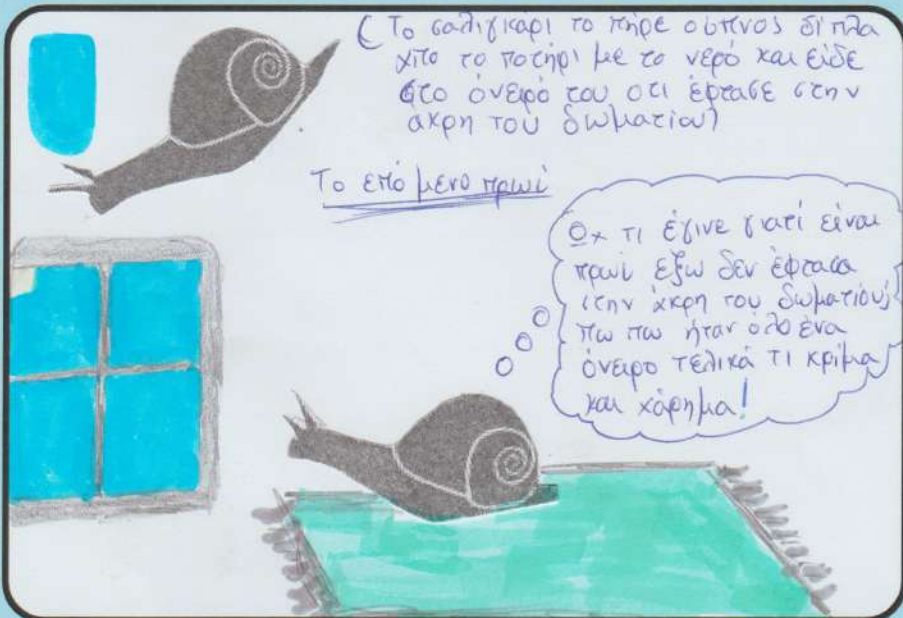 (Το σαλιγκάρι το πήρε ο υπνος δίπλα
απο το ποτήρι με το νερό και είδε
στο όνειρό του οτι έφτασε στην
άκρη του δωματίου)
Το επόμενο πρωί
Οχ τι έγινε γιατί είναι
πρωί εξω δεν έφτασα
στην άκρη του δωματίου;
πω πω ήταν όλο ένα
όνειρο τελικά τι κρίμα
και χάρημα!